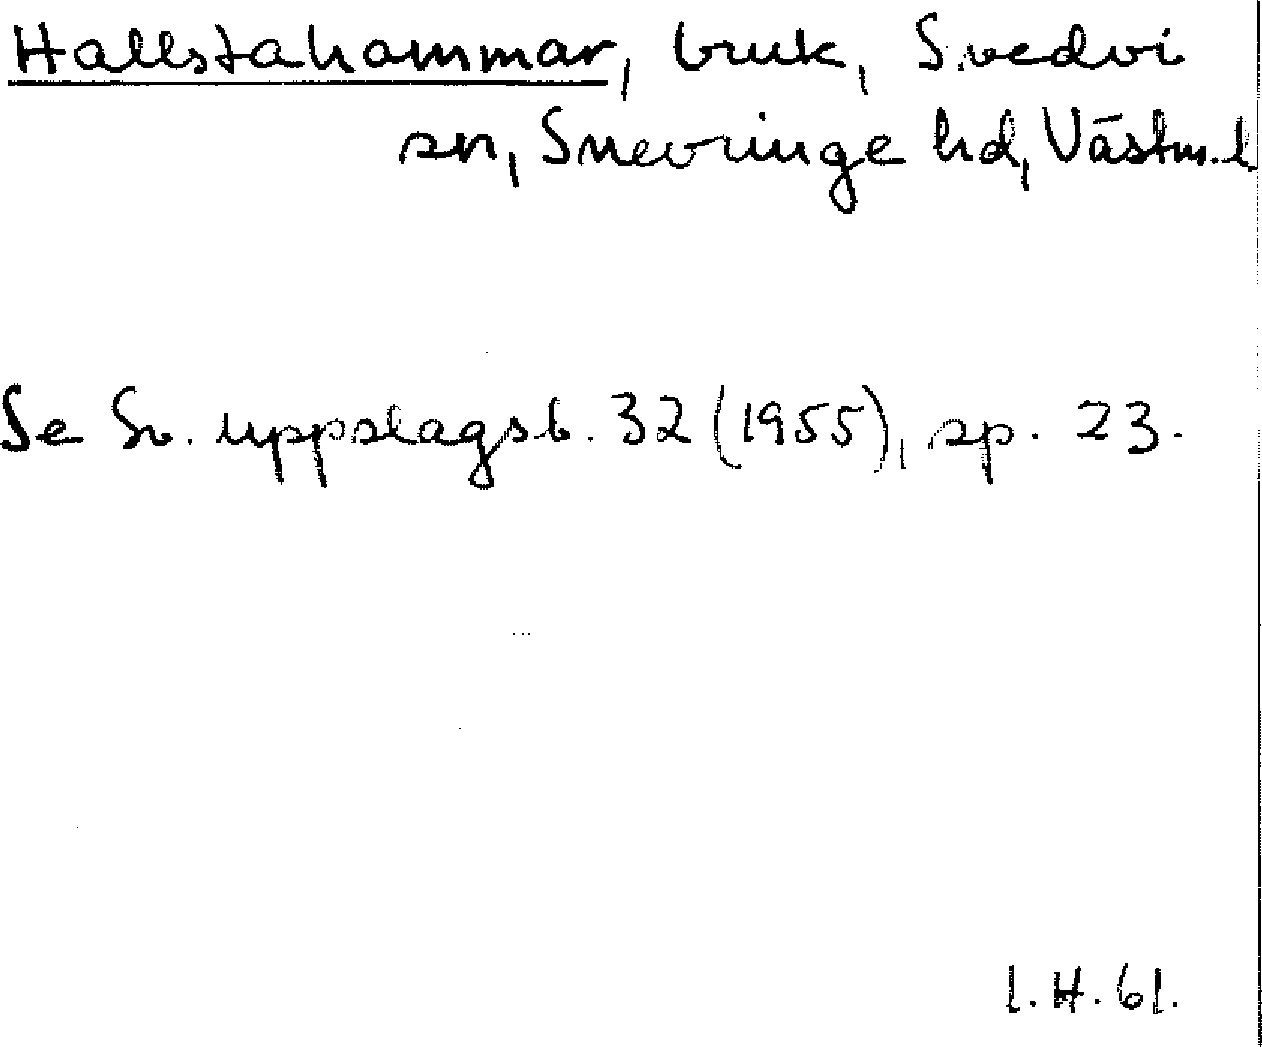 Hallstahammar, bruk, Svedvi
sn, Snevringe hd, Västm. l
Se Sv. uppslagsb. 32 (1955), sp. 23.
I. H. 61.